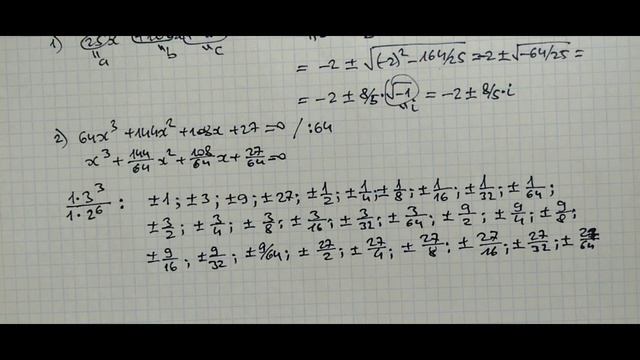 1) 25x
"a "b "c
= -2 ± √(-2)² - 164/25 = -2 ± √-64/25 =
= -2 ± 8/5 · √-1 = -2 ± 8/5 · i
"i
2) 64x³ + 144x² + 108x + 27 = 0 / :64
x³ + 144/64 x² + 108/64 x + 27/64 = 0
1·3³/1·2⁶ : ±1 ; ±3 ; ±9 ; ±27 ; ±1/2 ; ±1/4 ; ±1/8 ; ±1/16 ; ±1/32 ; ±1/64 ;
±3/2 ; ±3/4 ; ±3/8 ; ±3/16 ; ±3/32 ; ±3/64 ; ±9/2 ; ±9/4 ; ±9/8 ;
±9/16 ; ±9/32 ; ±9/64 ; ±27/2 ; ±27/4 ; ±27/8 ; ±27/16 ; ±27/32 ; ±27/64